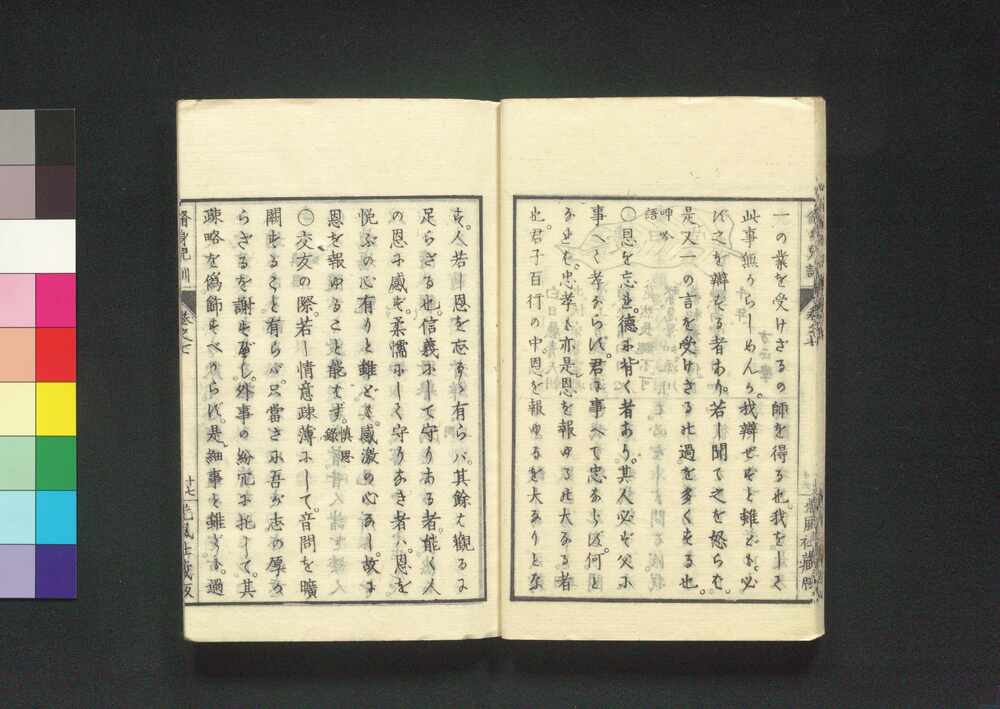 一の業を受けざるの師を得る也。我をして
此事無からしめんか。我辯せずと雖ども。必
ず之を辯ずる者あり。若し聞て之を怒らむ。
是又一の言を受けざる此過を多くする也。
呻吟
語
〇恩を忘れ。德に背く者あり。其人必ず父に
事へて孝ならば。君に事へて忠ならず。何と
なれば。忠孝も亦是恩を報ゆる此大なる者
也。君子百行の中。恩を報ゆるを大なりとな
す。人若し恩を忘するゝ有らバ。其餘は觀るに
足らざる也。信義にして守りある者。能く人
の恩に感ず。柔懦にして守りなき者ハ。恩を
悅ぶの心有りと雖ども。感激の心なし。故に
恩を報ゆること能はず。
愼思
錄
〇交友の際。若し情意疎薄にして。音問を曠
闕することと有らバ。只當さに吾が志の厚か
らざるを謝すべし。外事の紛冗に托して。其
疎略を僞飾すべからず。是細事と雖ども。過
脩身兒訓
卷之七
十七
光風社藏版